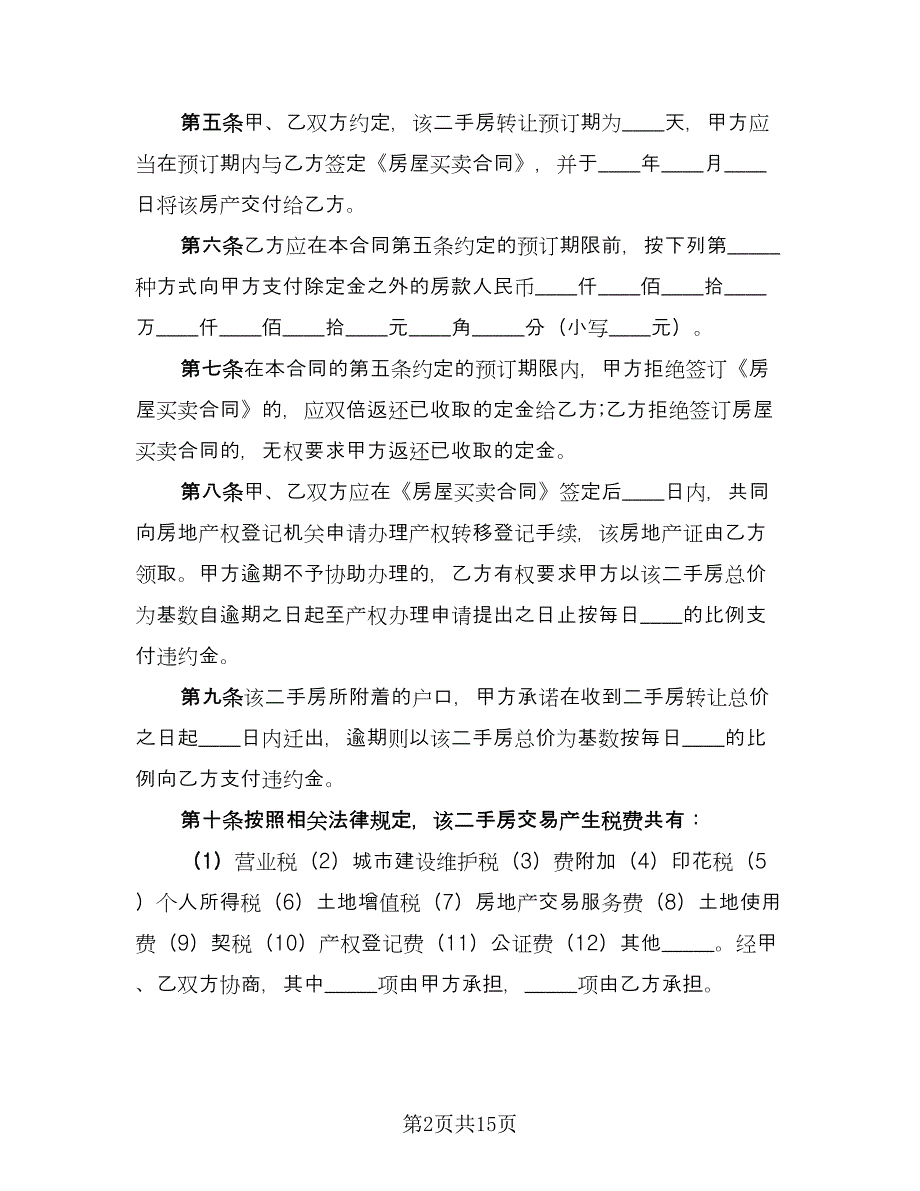 第五条甲、乙双方约定，该二手房转让预订期为____天，甲方应
当在预订期内与乙方签定《房屋买卖合同》，并于____年____月____
日将该房产交付给乙方。
第六条乙方应在本合同第五条约定的预订期限前，按下列第_____
种方式向甲方支付除定金之外的房款人民币____仟____佰____拾____
万____仟____佰____拾____元____角_____分（小写____元）。
第七条在本合同的第五条约定的预订期限内，甲方拒绝签订《房
屋买卖合同》的，应双倍返还已收取的定金给乙方;乙方拒绝签订房屋
买卖合同的，无权要求甲方返还已收取的定金。
第八条甲、乙双方应在《房屋买卖合同》签定后____日内，共同
向房地产权登记机关申请办理产权转移登记手续，该房地产证由乙方
领取。甲方逾期不予协助办理的，乙方有权要求甲方以该二手房总价
为基数自逾期之日起至产权办理申请提出之日止按每日____的比例支
付违约金。
第九条该二手房所附着的户口，甲方承诺在收到二手房转让总价
之日起____日内迁出，逾期则以该二手房总价为基数按每日____的比
例向乙方支付违约金。
第十条按照相关法律规定，该二手房交易产生税费共有：
（1）营业税（2）城市建设维护税（3）费附加（4）印花税（5
）个人所得税（6）土地增值税（7）房地产交易服务费（8）土地使用
费（9）契税（10）产权登记费（11）公证费（12）其他_____。经甲
、乙双方协商，其中_____项由甲方承担，_____项由乙方承担。
第2页共15页